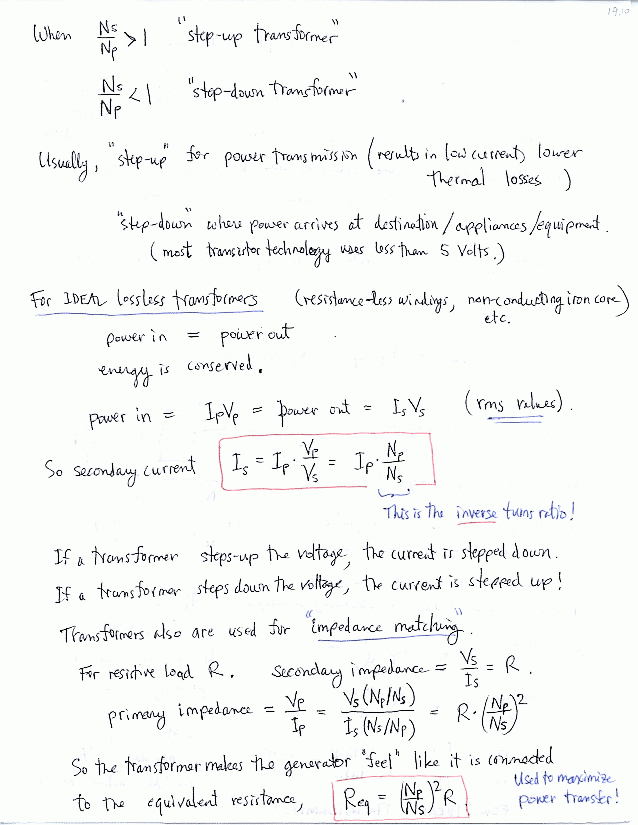 19.10
When Ns/Np > 1 "step-up transformer"
Ns/Np < 1 "step-down transformer"
Usually, "step-up" for power transmission (results in low current, lower
thermal losses )
"step-down" where power arrives at destination/appliances/equipment.
(most transistor technology uses less than 5 Volts.)
For IDEAL lossless transformers (resistance-less windings, non-conducting iron core)
etc.
power in = power out
energy is conserved.
power in = IpVp = power out = IsVs (rms values).
So secondary current Is = Ip · Vp/Vs = Ip · Np/Ns
This is the inverse turns ratio!
If a transformer steps-up the voltage, the current is stepped down.
If a transformer steps down the voltage, the current is stepped up!
Transformers also are used for "impedance matching".
For resistive load R. Secondary impedance = Vs/Is = R.
primary impedance = Vp/Ip = Vs(Np/Ns)/Is(Ns/Np) = R·(Np/Ns)²
So the transformer makes the generator "feel" like it is connected
to the equivalent resistance, Req = (Np/Ns)² R
Used to maximize
power transfer!